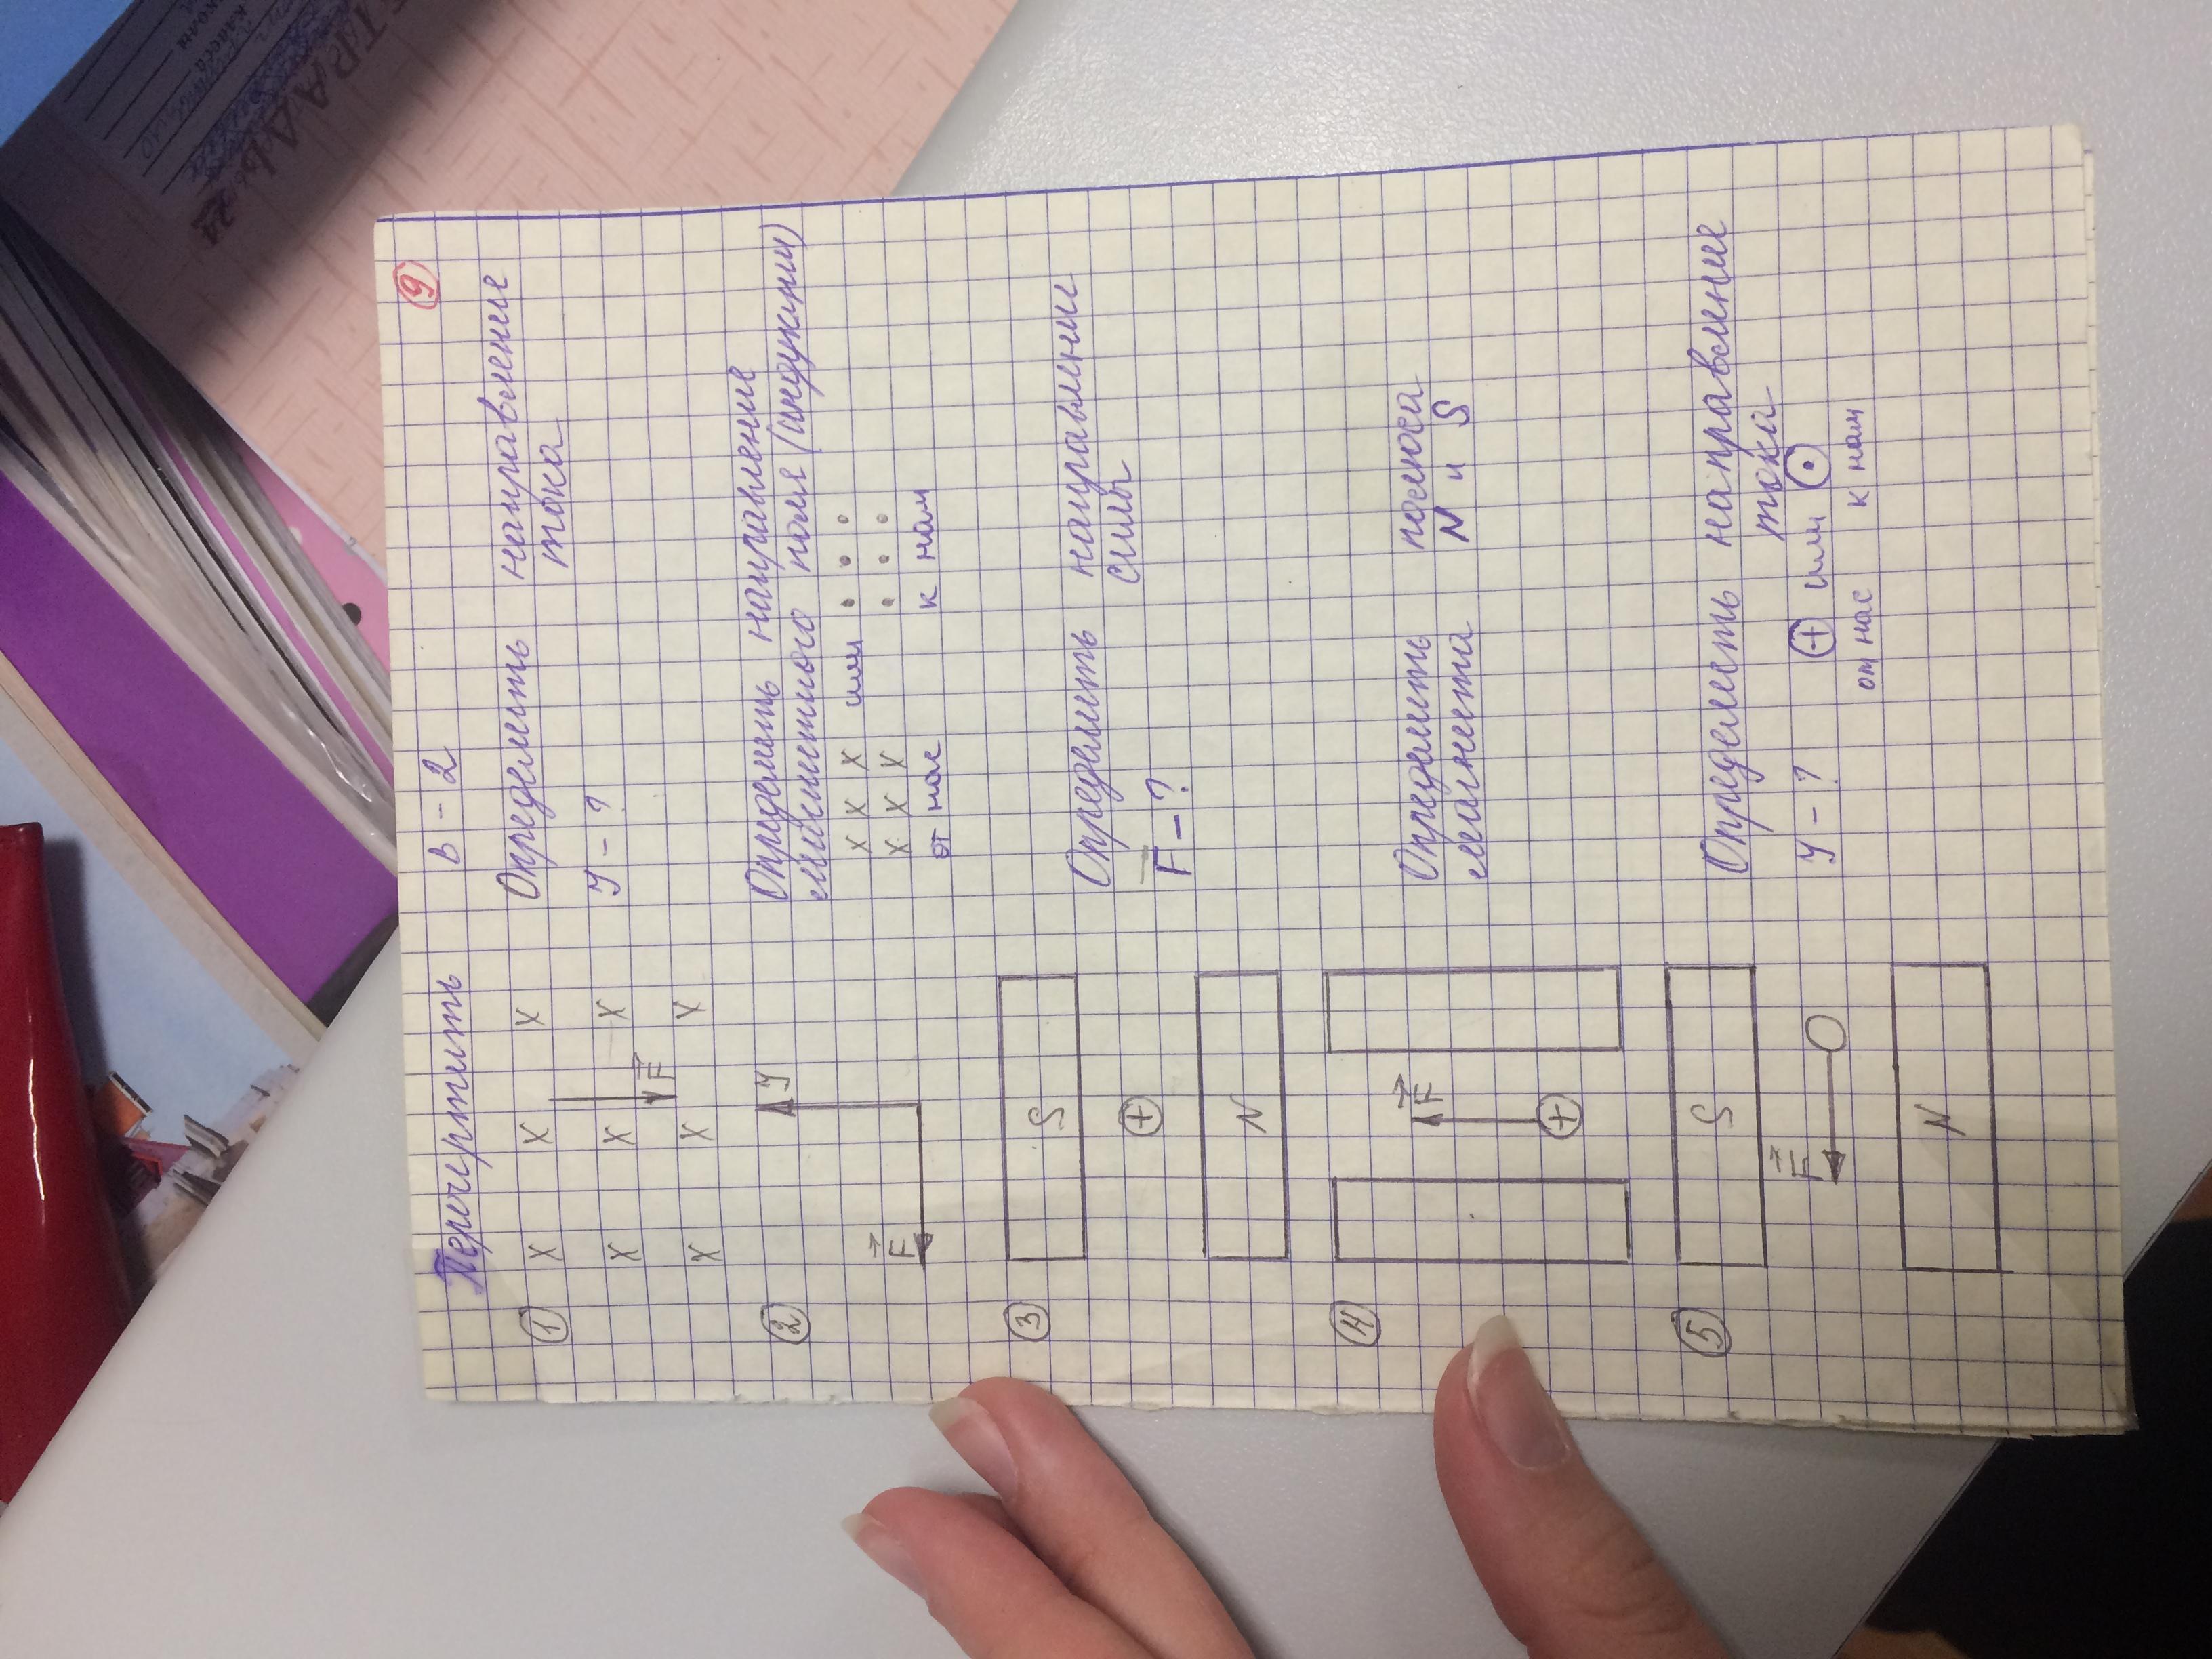 ТЕТРАДЬ
Перечертить В - 2 9
1 х х х Определить направление
тока
х х х У - ?
F
х х х
2 У Определить направление
магнитного поля (индукции)
F х х х или • • •
х х х • • •
от нас к нам
3 S Определить направление
силы
+ F - ?
N
4 F Определить полюса
магнита N и S
+
5 S Определить направление
тока
F У - ? + или •
от нас к нам
N